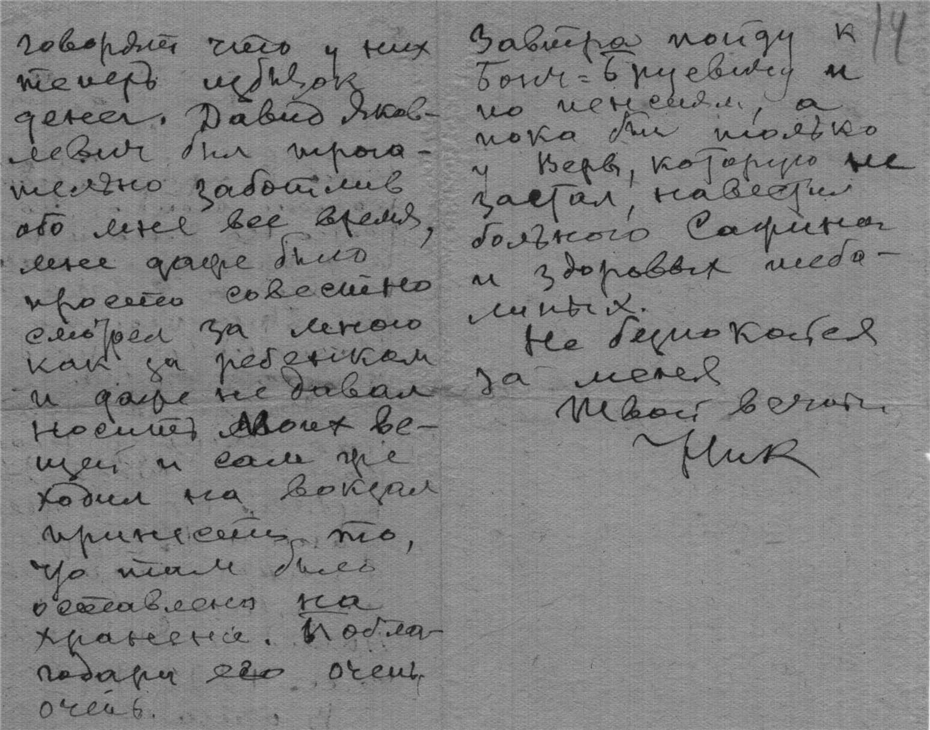 говорят что у них
теперь избыток
денег. Давид Яков-
левич был трога-
тельно заботлив
обо мне все время,
мне даже было
просто совестно
смотрел за мною
как за ребенком
и даже не давал
носить моих ве-
щей и сам же
ходил на вокзал
принесть то,
что там было
оставлено на
хранение. Побла-
годари его очень
очень.
14
Завтра пойду к
Бонч=Бруевичу и
по пенсиям, а
пока был только
у Веры, которую не
застал, навестил
больного Сафонова
и здоровых
Не беспокойся
за меня
Твой вечно
Ник